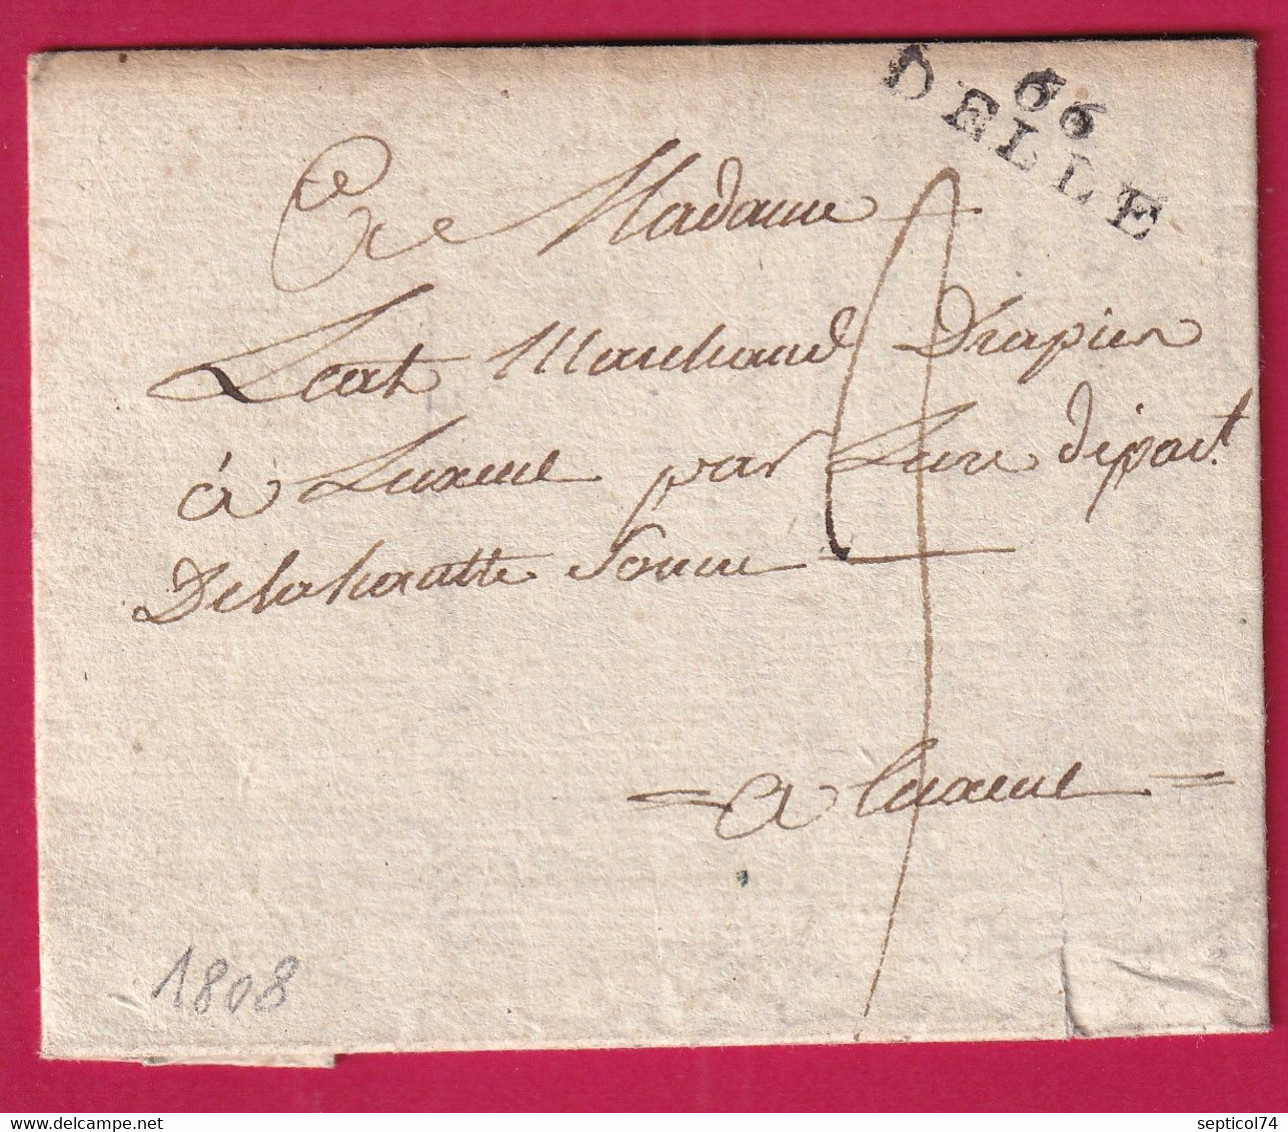 66
DELLE
Madame
Leat Marchand Drapier
à Luxeul par Lure dépat.
Delahautte Sonne
= a luxeul =
1808
www.delcampe.net
septicol74